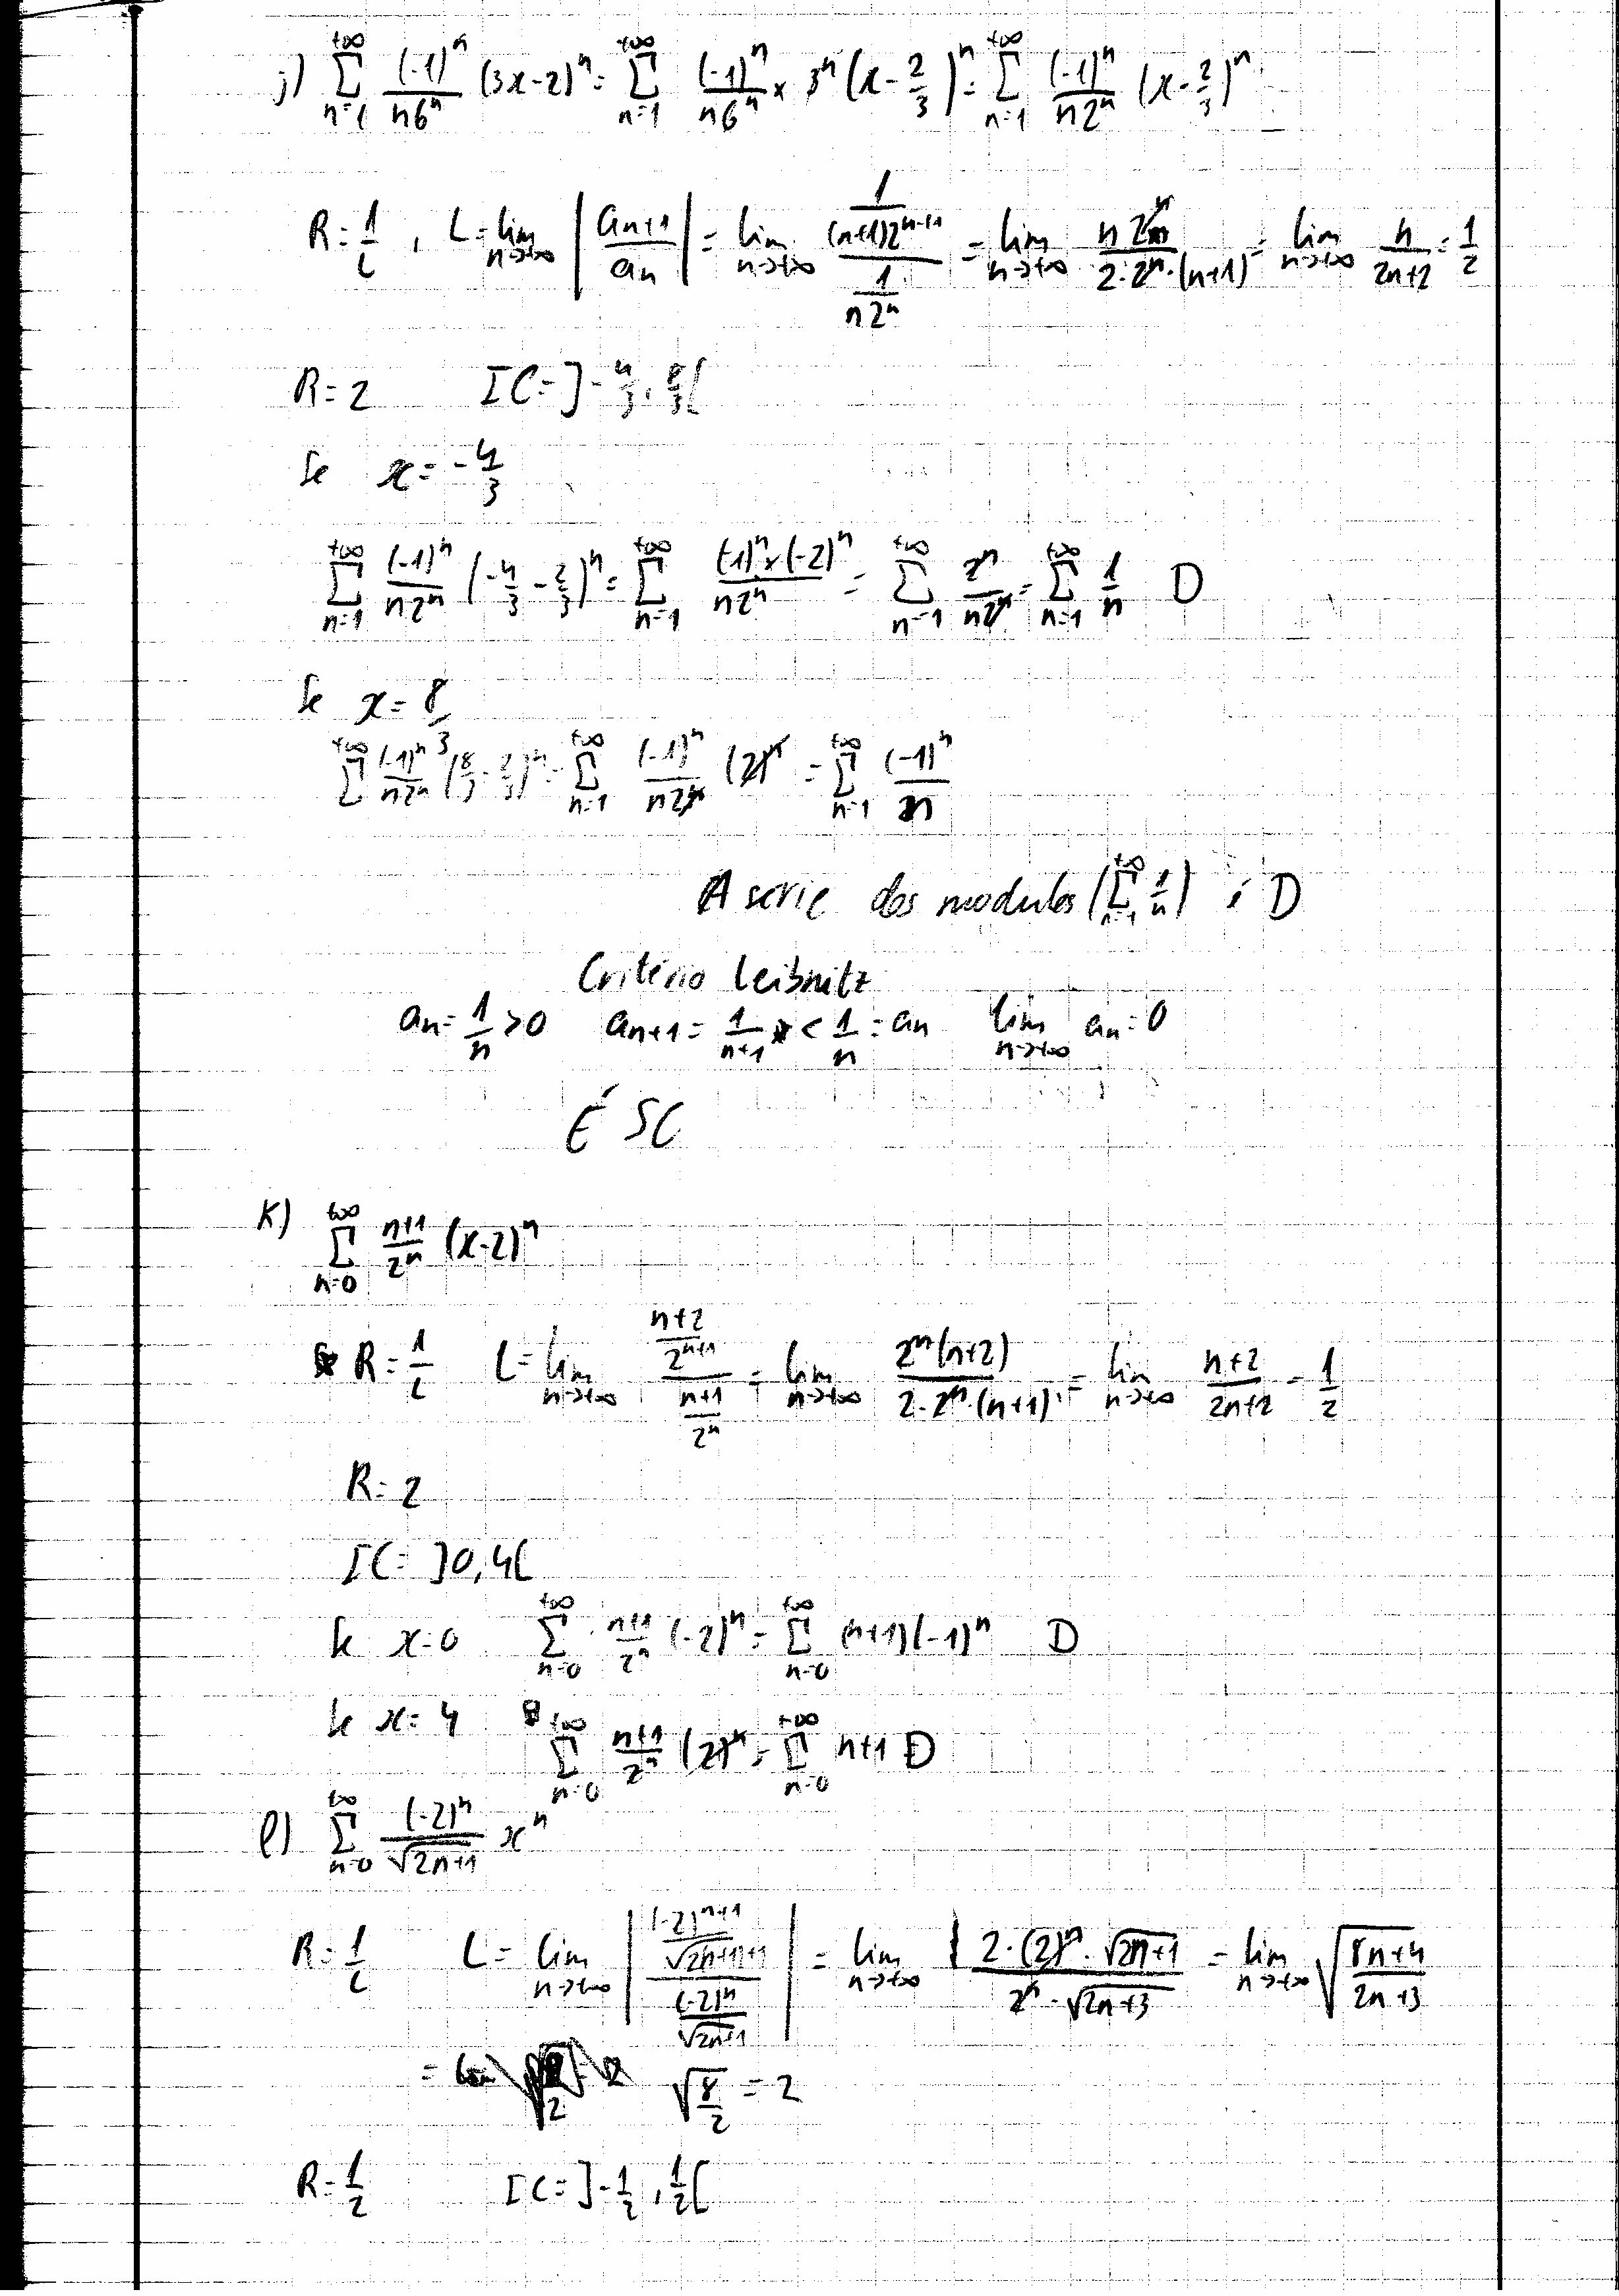 j) ∑_{n=1}^{+∞} (-1)^n/(n6^n) (3x-2)^n = ∑_{n=1}^{+∞} (-1)^n/(n6^n) × 3^n (x - 2/3)^n = ∑_{n=1}^{+∞} (-1)^n/(n2^n) (x - 2/3)^n
R = 1/L , L = lim_{n→+∞} |a_{n+1}/a_n| = lim_{n→+∞} (1/((n+1)2^{n+1}))/(1/(n2^n)) = lim_{n→+∞} n2^n/(2·2^n·(n+1)) = lim_{n→+∞} n/(2n+2) = 1/2
R = 2 IC = ]-4/3, 8/3[
Se x = -4/3
∑_{n=1}^{+∞} (-1)^n/(n2^n) (-4/3 - 2/3)^n = ∑_{n=1}^{+∞} ((-1)^n × (-2)^n)/(n2^n) = ∑_{n=1}^{+∞} 2^n/(n2^n) = ∑_{n=1}^{+∞} 1/n D
Se x = 8/3
∑^{+∞} (-1)^n/(n2^n) (8/3 - 2/3)^n = ∑_{n=1}^{+∞} (-1)^n/(n2^n) (2)^n = ∑_{n=1}^{+∞} (-1)^n/n
A serie dos modulos (∑_{n=1}^{+∞} 1/n) é D
Critério Leibnitz
a_n = 1/n > 0 a_{n+1} = 1/(n+1) < 1/n = a_n lim_{n→+∞} a_n = 0
É SC
K) ∑_{n=0}^{+∞} (n+1)/2^n (x-2)^n
R = 1/L L = lim_{n→+∞} ((n+2)/2^{n+1})/((n+1)/2^n) = lim_{n→+∞} 2^n(n+2)/(2·2^n·(n+1)) = lim_{n→+∞} (n+2)/(2n+2) = 1/2
R = 2
IC = ]0,4[
Se x=0 ∑_{n=0}^{+∞} (n+1)/2^n (-2)^n = ∑_{n=0}^{+∞} (n+1)(-1)^n D
Se x=4 ∑_{n=0}^{+∞} (n+1)/2^n (2)^n = ∑_{n=0}^{+∞} n+1 D
l) ∑_{n=0}^{+∞} (-2)^n/√(2n+1) x^n
R = 1/L L = lim_{n→+∞} |((-2)^{n+1}/√(2(n+1)+1))/((-2)^n/√(2n+1))| = lim_{n→+∞} (2·(2)^n·√(2n+1))/(2^n·√(2n+3)) = lim_{n→+∞} √((8n+4)/(2n+3))
= √(8/2) = 2
R = 1/2 IC = ]-1/2, 1/2[